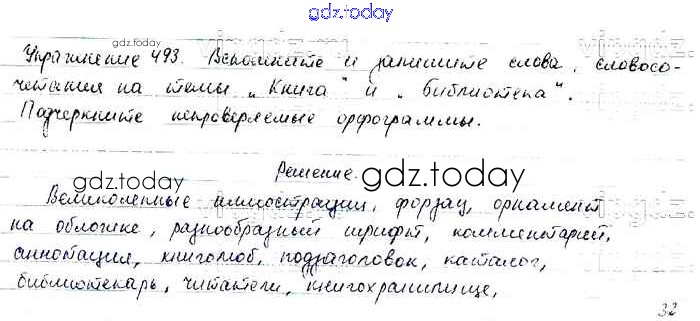 gdz.today
Упражнение 493. Вспомните и запишите слова, словосо-
четания на темы „Книга" и „библиотека".
Подчеркните непроверяемые орфограммы.
gdz.today
Решение.
gdz.today
gdz.today
Великолепные иллюстрации, форзац, орнамент
на обложке, разнообразный шрифт, комментарий,
аннотация, книголюб, подзаголовок, каталог,
библиотекарь, читатели, книгохранилище,
32